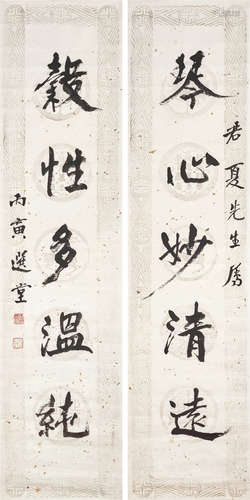 琴心妙清遠
君夏先生屬
穀性多溫純
丙寅選堂